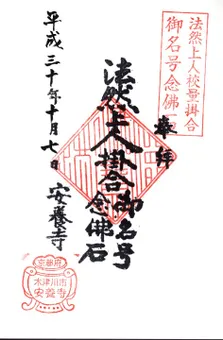 法然上人校量掛合
御名号念佛
奉拜
法然上人掛合御名号
念佛石
平成三十年十月七日
安養寺
京都府
木津川市
安養寺